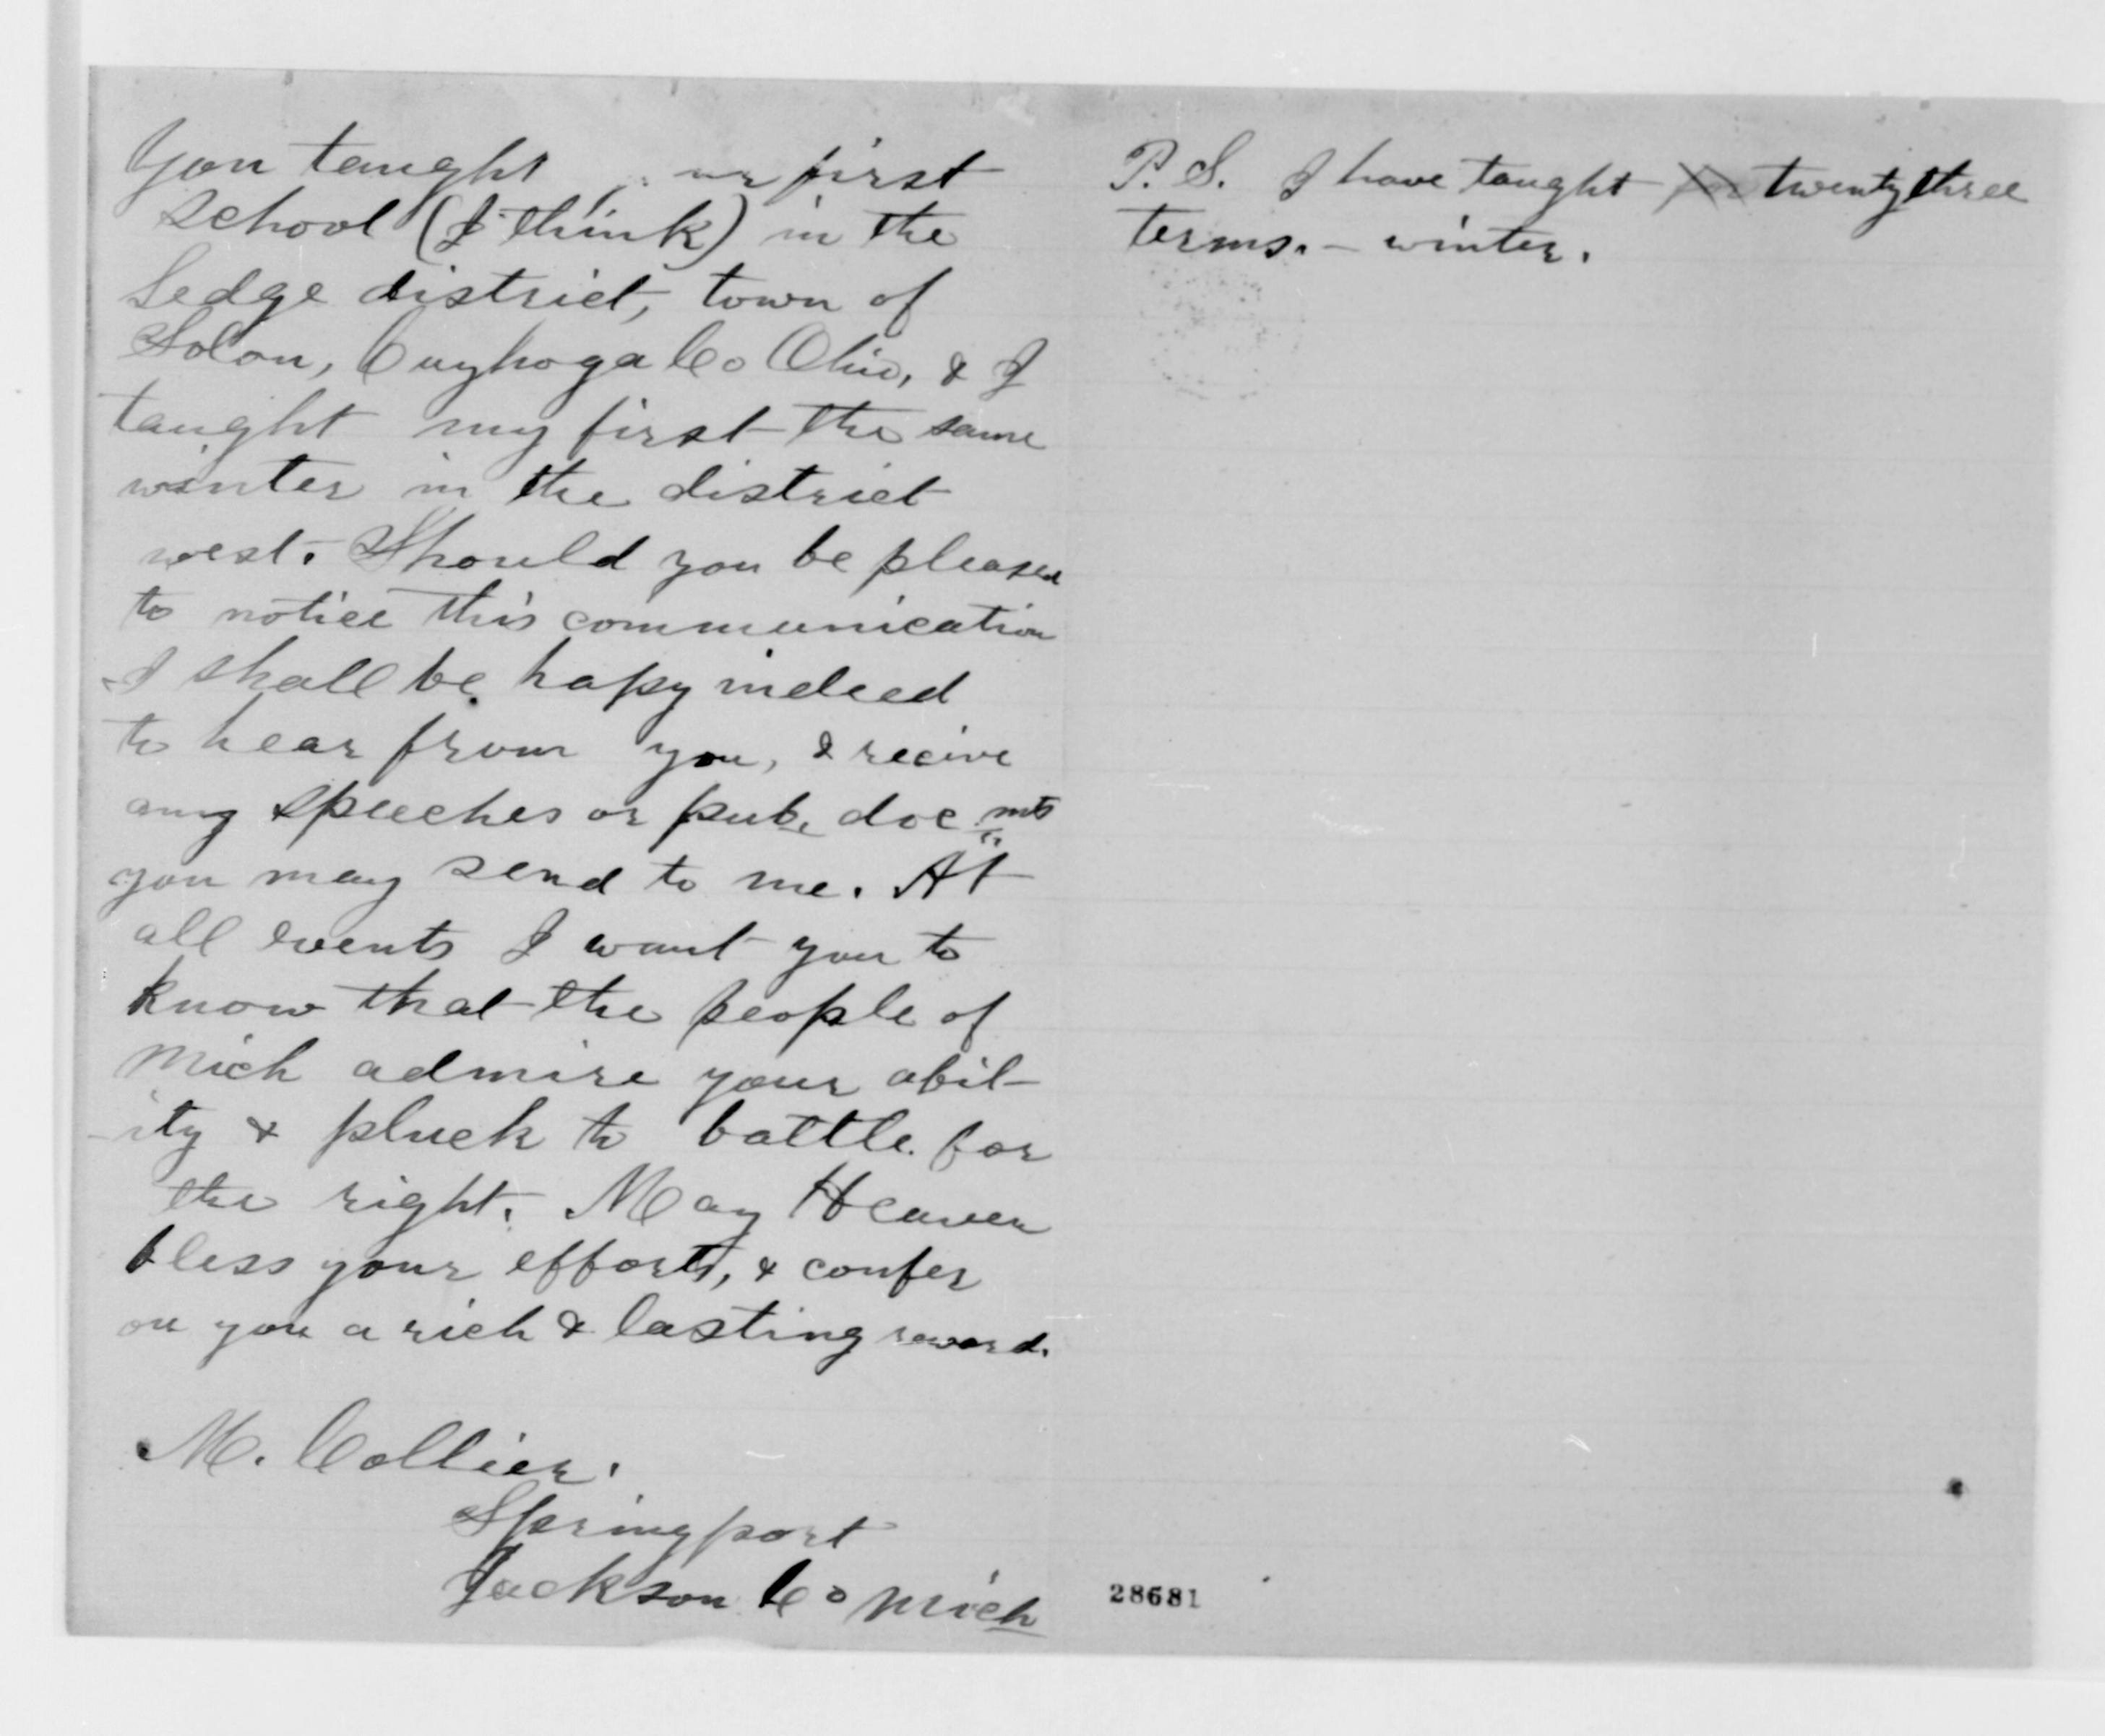 You taught first
school (I think) in the
Ledge district, town of
Solon, Cuyhoga Co Ohio, & I
taught my first the same
winter in the district
west. Should you be pleased
to notice this communication
I shall be hapy indeed
to hear from you, & recive
any speeches or pub. doc mts
you may send to me. At
all events I want you to
know that the people of
Mich admire your abil-
-ity & pluck to battle for
the right. May Heaven
bless your efforts, & confer
on you a rich & lasting reward.
M. Collier.
Springport
Jackson Co Mich
P.S. I have taught twenty three
terms. - winter.
28681